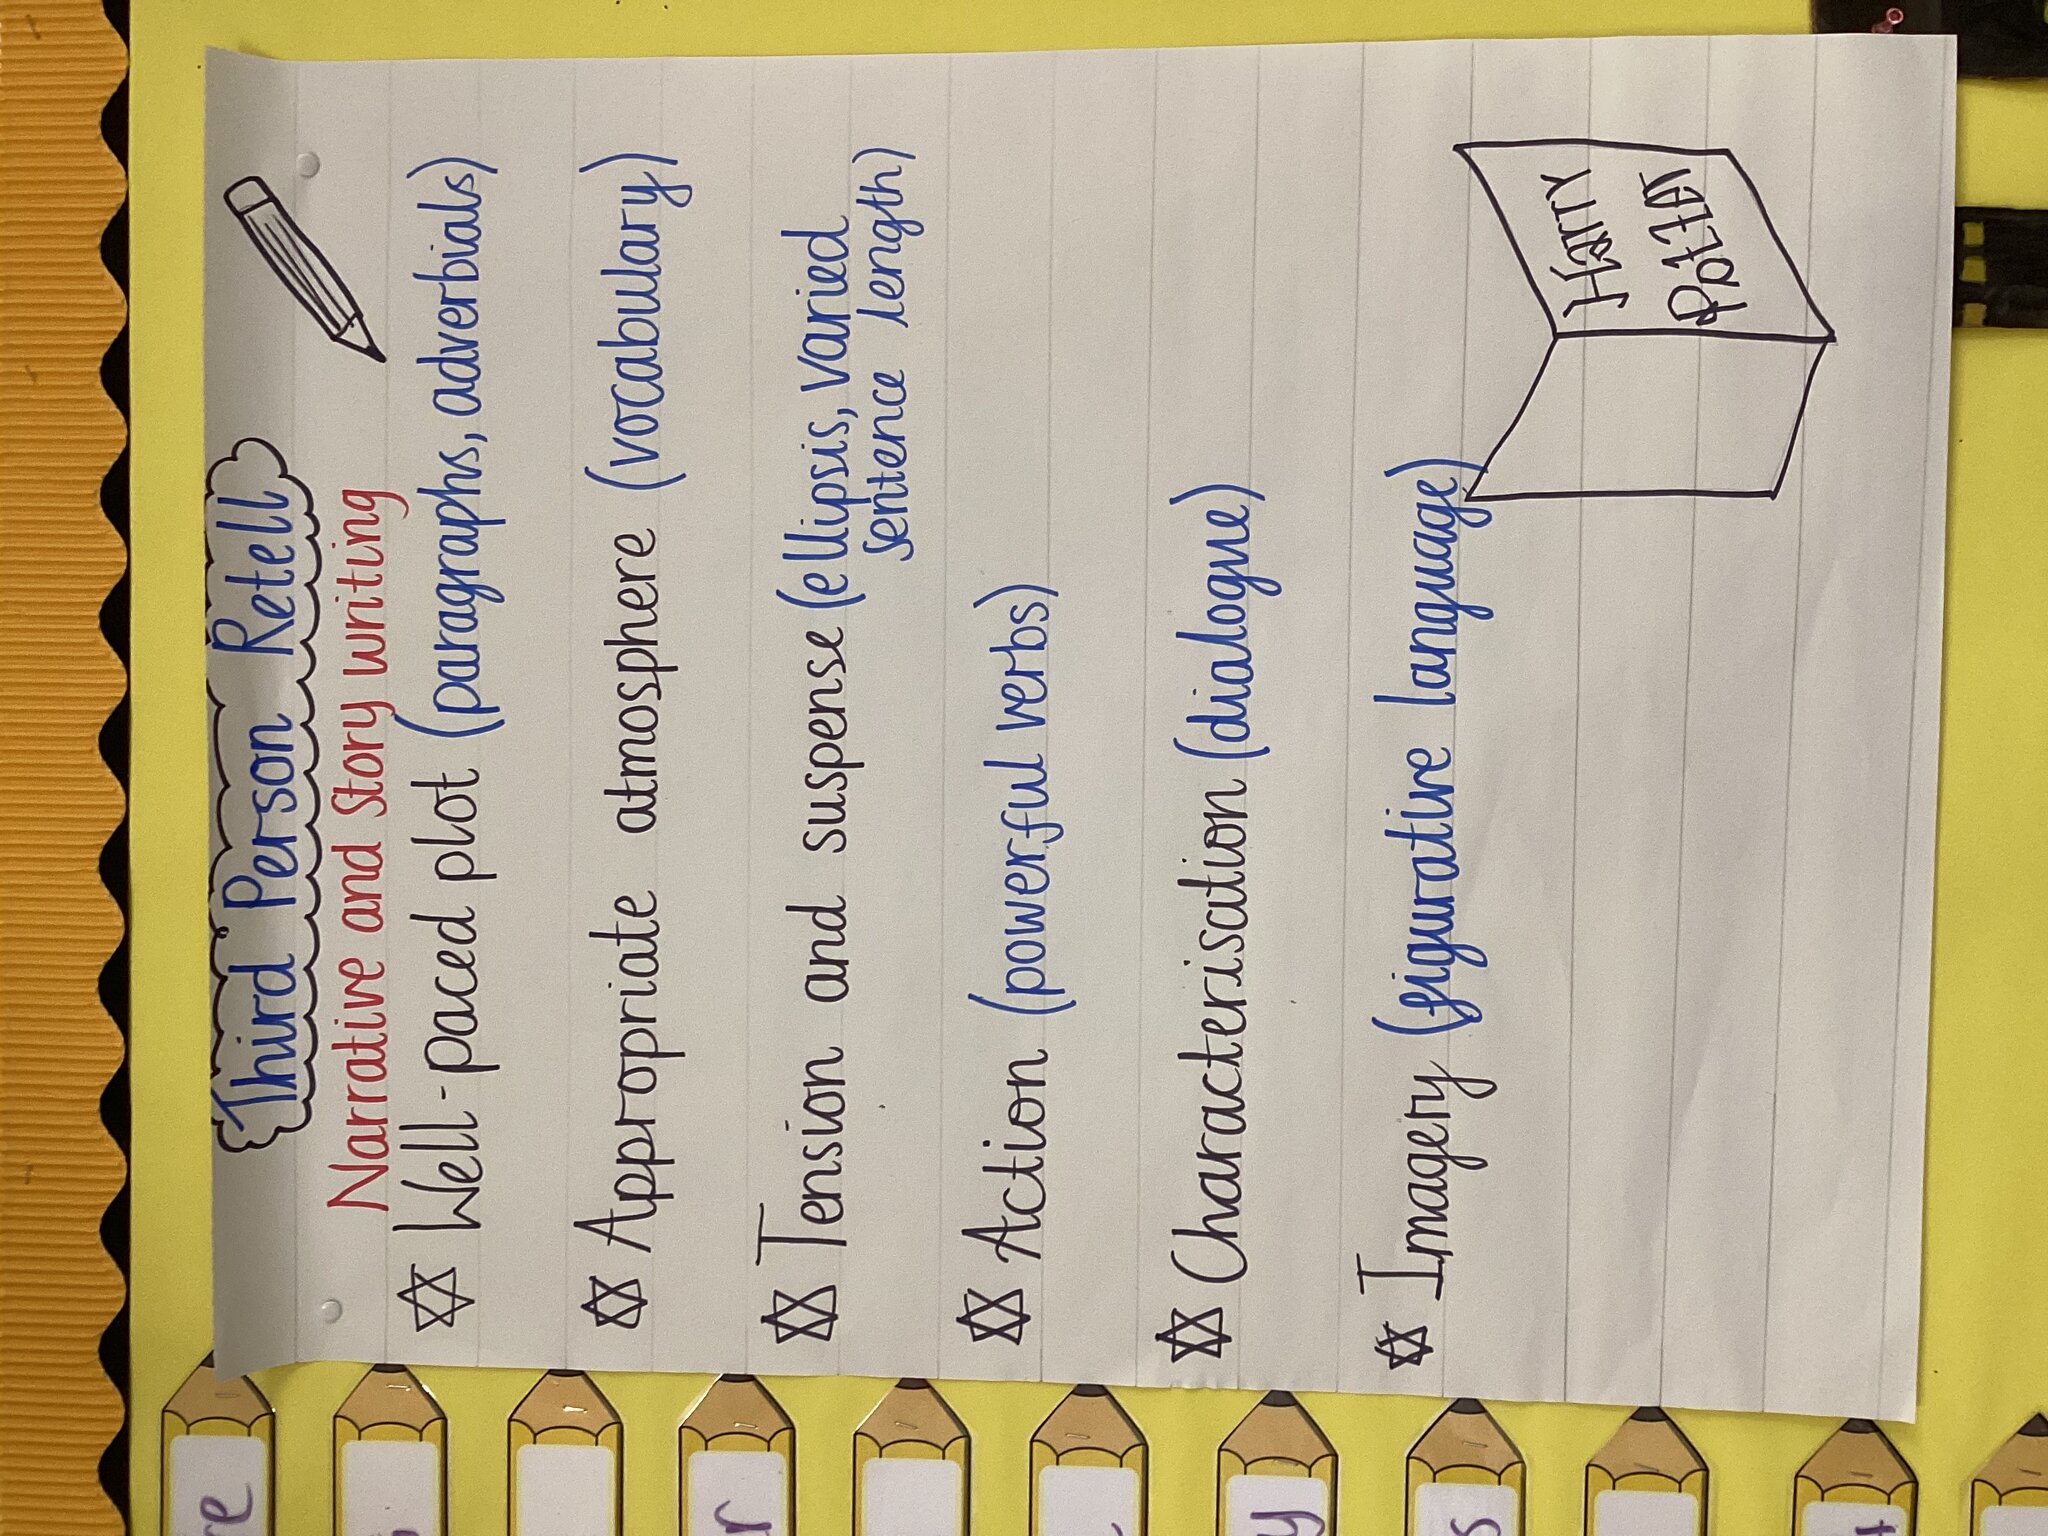 Third Person Retell
Narrative and story writing
Well-paced plot (paragraphs, adverbials)
Appropriate atmosphere (vocabulary)
Tension and suspense (ellipsis, varied
sentence length)
Action (powerful verbs)
Characterisation (dialogue)
Imagery (figurative language)
Harry
Potter